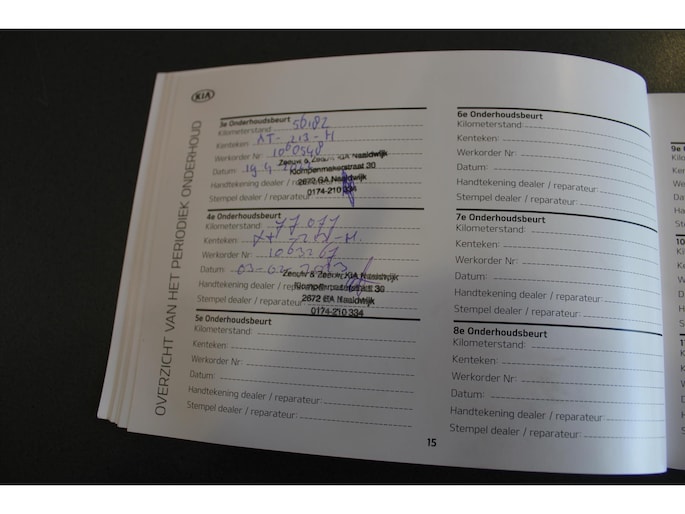 KIA
OVERZICHT VAN HET PERIODIEK ONDERHOUD
3e Onderhoudsbeurt
Kilometerstand: 56182
Kenteken: XT-213-H
Werkorder Nr: 1060548
Datum: 19-4
Handtekening dealer / reparateur:
Stempel dealer / reparateur:
Zeeuw & Zeeuw KIA Naaldwijk
Klompenmakerstraat 30
2672 GA Naaldwijk
0174-210 334
4e Onderhoudsbeurt
Kilometerstand: 77077
Kenteken: XT H.
Werkorder Nr: 1063267
Datum: 03-02-2023
Handtekening dealer / reparateur:
Stempel dealer / reparateur:
Zeeuw & Zeeuw KIA Naaldwijk
Klompenmakerstraat 30
2672 GA Naaldwijk
0174-210 334
5e Onderhoudsbeurt
Kilometerstand:
Kenteken:
Werkorder Nr:
Datum:
Handtekening dealer / reparateur:
Stempel dealer / reparateur:
6e Onderhoudsbeurt
Kilometerstand:
Kenteken:
Werkorder Nr:
Datum:
Handtekening dealer / reparateur:
Stempel dealer / reparateur:
7e Onderhoudsbeurt
Kilometerstand:
Kenteken:
Werkorder Nr:
Datum:
Handtekening dealer / reparateur:
Stempel dealer / reparateur:
8e Onderhoudsbeurt
Kilometerstand:
Kenteken:
Werkorder Nr:
Datum:
Handtekening dealer / reparateur:
Stempel dealer / reparateur:
15